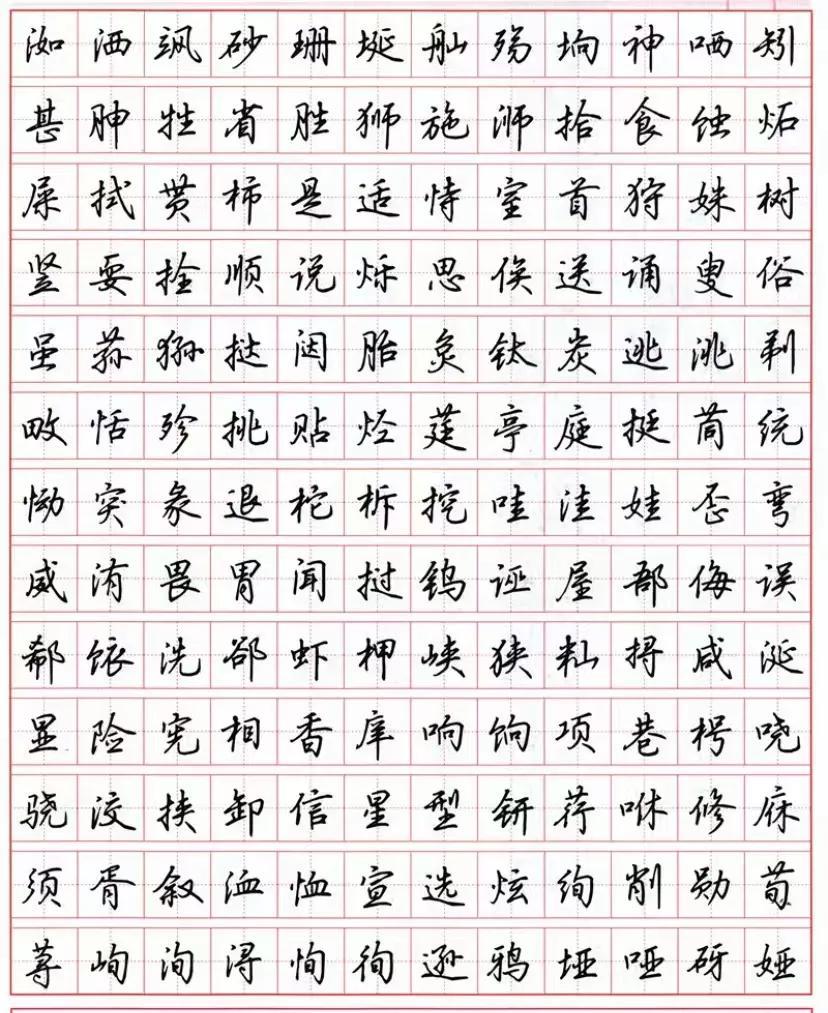 洳洒飒砂珊埏舢殇垧神哂矧
甚胂牲省胜狮施浉拾食蚀炻
屎拭贳柿是适恃室首狩姝树
竖耍拴顺说烁思俟送诵叟俗
虽荪狲挞闼胎炱钛炭逃洮剃
畋恬殄挑贴烃莛亭庭挺茼统
恸突彖退柁柝挖哇洼娃歪弯
威洧畏胃闻挝钨诬屋郚侮误
郗饻洗郤虾柙峡狭籼挦咸涎
显险宪相香庠响饷项巷枵哓
骁洨挟卸信星型钘荇咻修庥
须胥叙洫恤宣选炫绚削勋荀
荨峋洵浔恂徇逊鸦垭哑砑娅